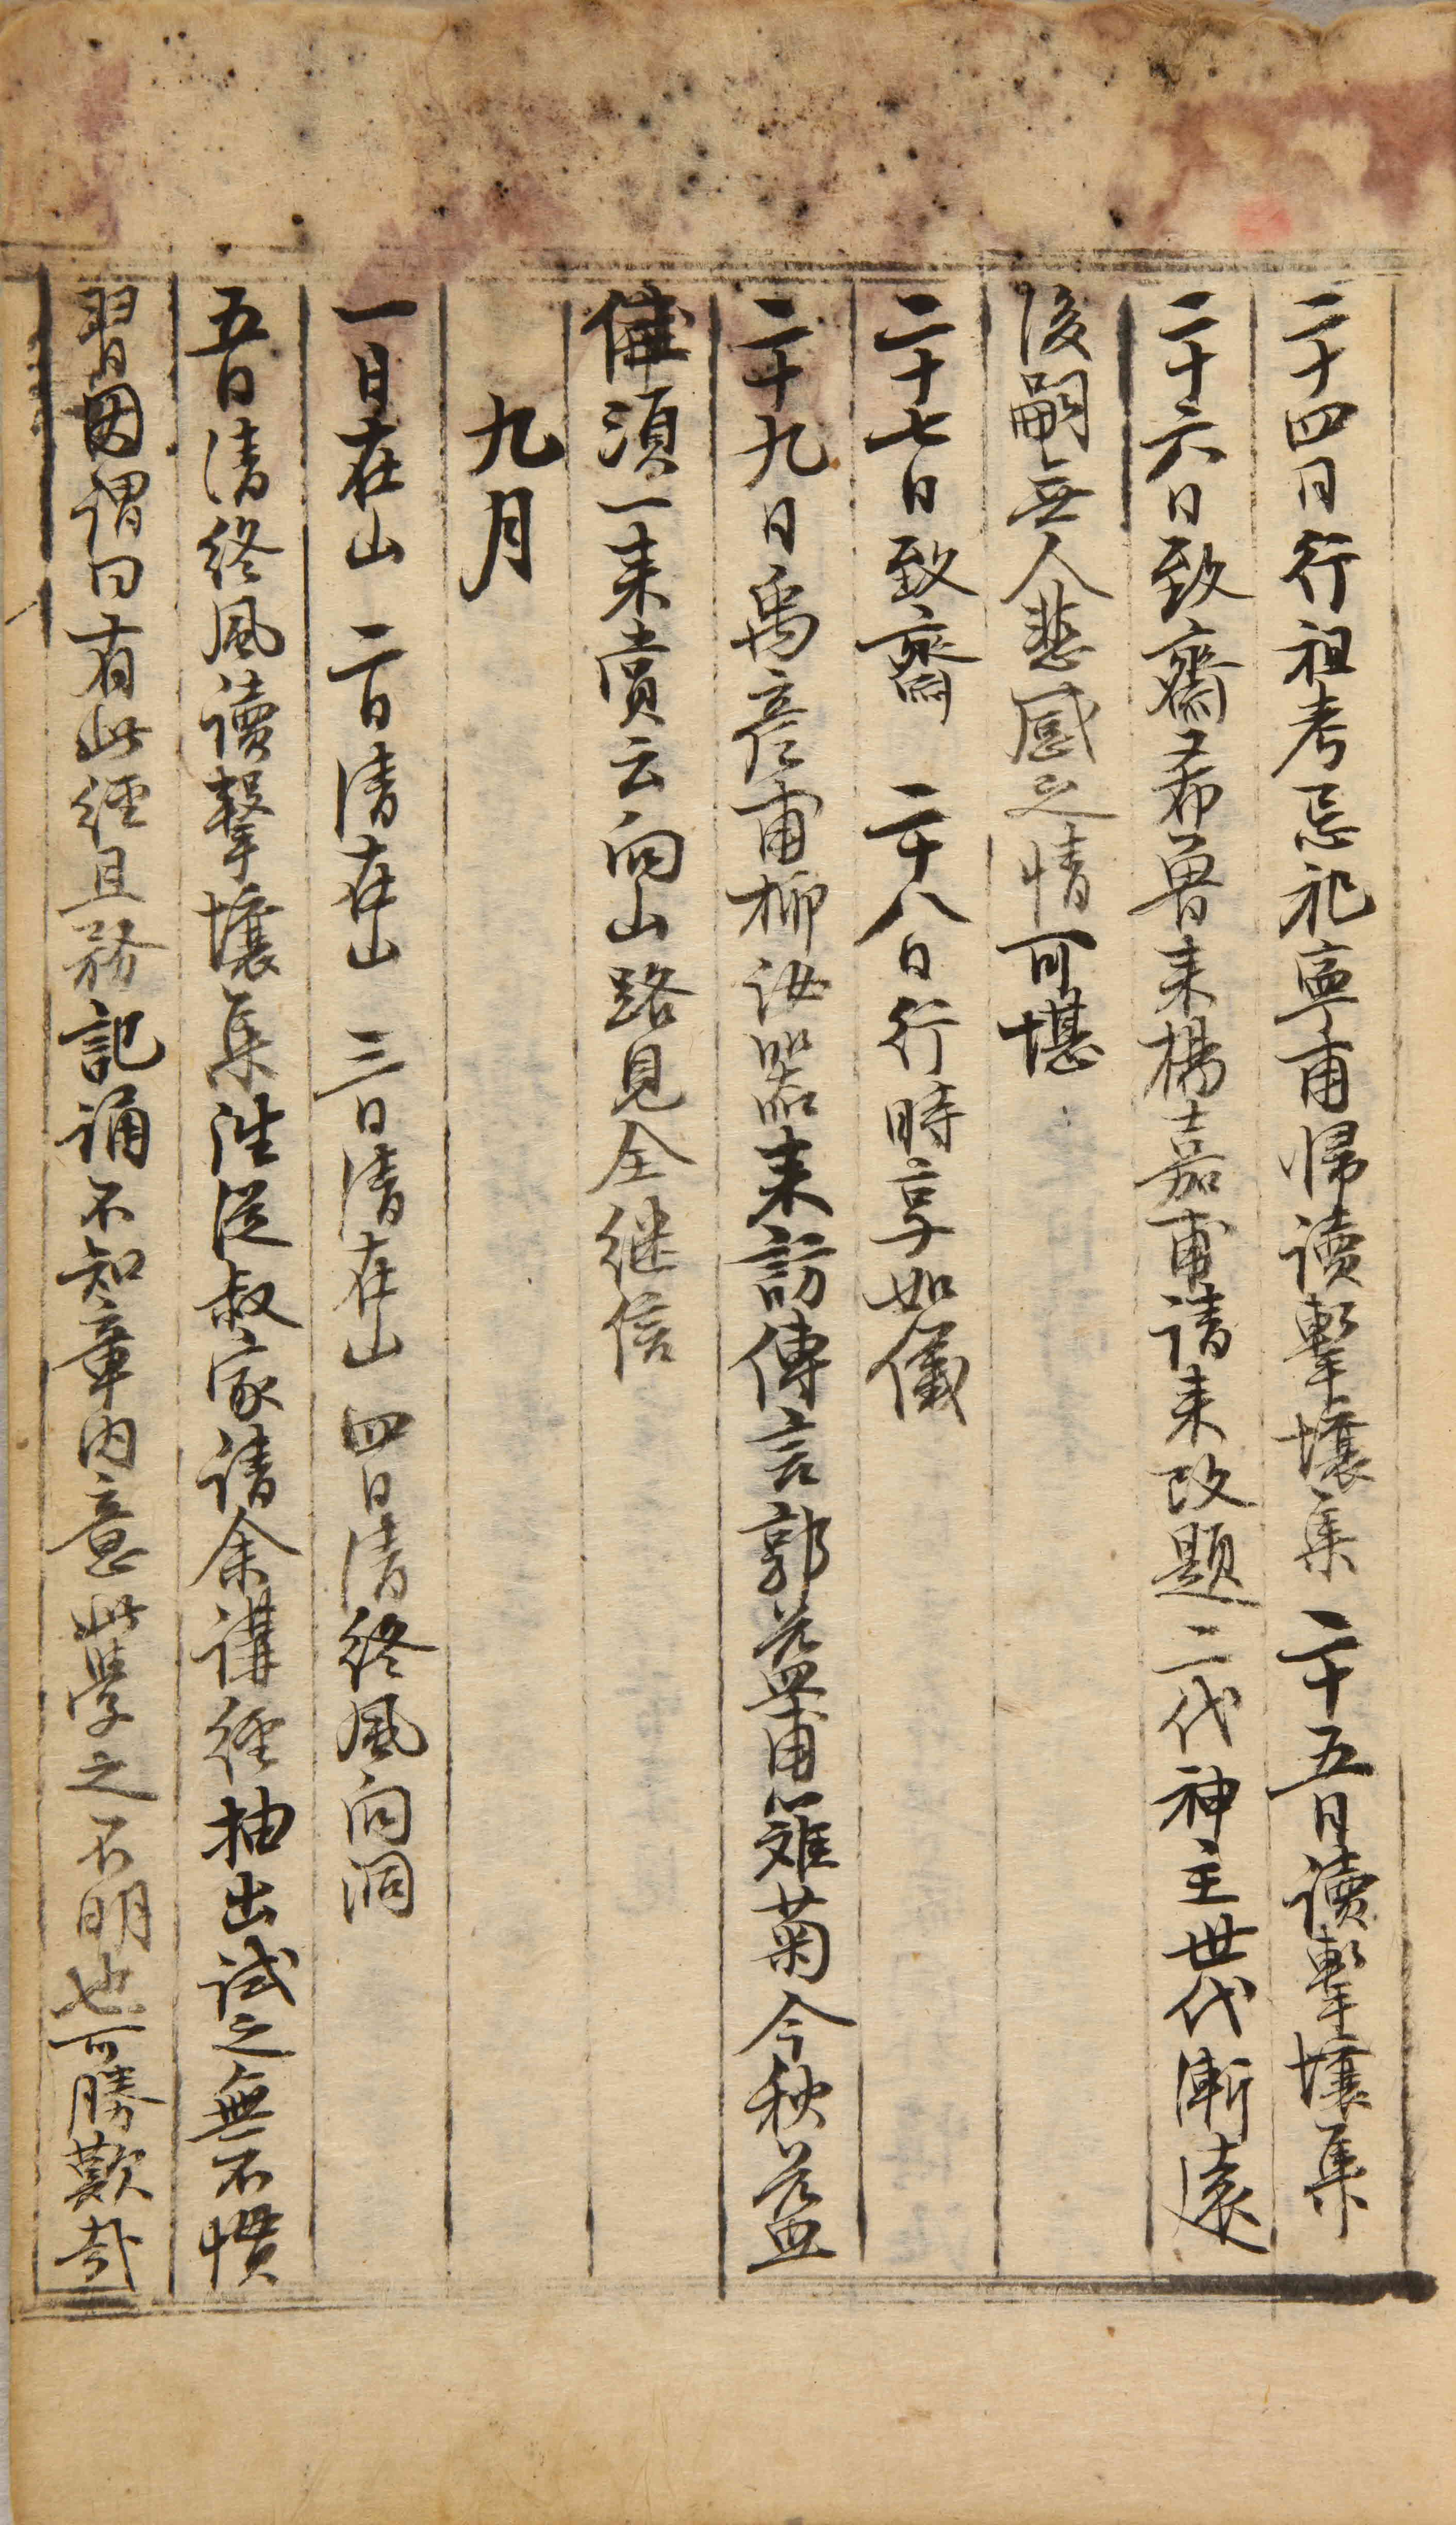 二十四日行祖考忌祀寧甫歸讀擊壤集 二十五日讀擊壤集
二十六日致齋又希魯来楊嘉甫請来改題二代神主世代漸遠
後嗣無人悲感之情可堪
二十七日致齋 二十八日行時享如儀
二十九日禹彦甫柳汝器来訪傳言郭益甫籬菊今秋益
備須一来賞云向山路見全継信
九月
一日在山 二日清在山 三日清在山 四日清終風向洞
五日清終風讀擊壤集淮從叔家請余講經抽出試之無不慣
習因謂曰有此經且務記誦不知章内意此學之不明也可勝歎哉